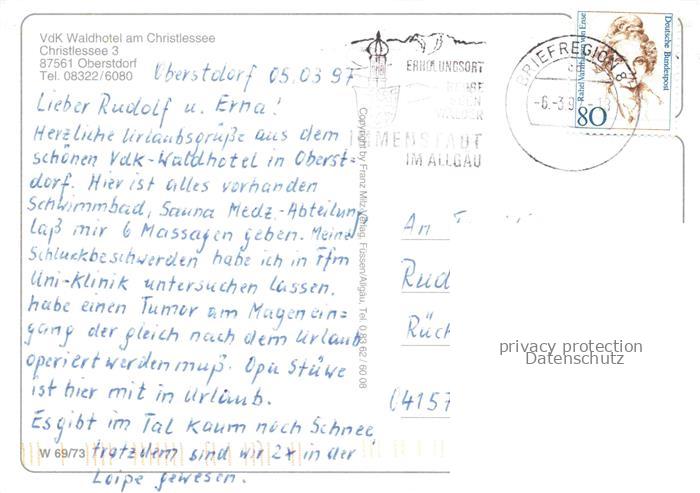 VdK Waldhotel am Christlessee
Christlessee 3
87561 Oberstdorf
Tel. 08322/6080
Oberstdorf 05.03 97
Lieber Rudolf u. Erna!
Herzliche Urlaubsgrüße aus dem
schönen VdK-Waldhotel in Oberst-
dorf. Hier ist alles vorhanden
Schwimmbad, Sauna Medz.-Abteilung
laß mir 6 Massagen geben. Meine
Schluckbeschwerden habe ich in Ffm
Uni-Klinik untersuchen lassen.
habe einen Tumor am Magenein=
gang der gleich nach dem Urlaub
operiert werden muß. Opa Stüwe
ist hier mit in Urlaub.
Es gibt im Tal kaum noch Schnee,
trotzdem sind wir 2x in der
Loipe gewesen.
W 69/73
Copyright by Franz Milz Verlag, Füssen/Allgäu, Tel. 0 83 62 / 60 08
ERHOLUNGSORT
BERGE
SEEN
WÄLDER
IMMENSTADT
IM ALLGÄU
BRIEFREGION 87
-6.-3.9
Rahel Varnhagen von Ense
Deutsche Bundespost
80
An
Rud
Rück
04157
privacy protection
Datenschutz